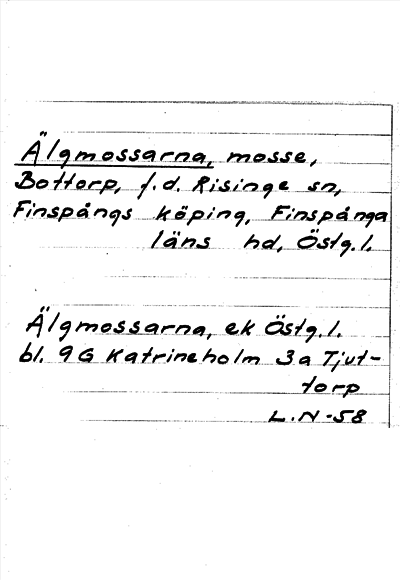 Älgmossarna, mosse,
Bottorp, f.d. Risinge sn,
Finspångs köping, Finspånga
läns hd, Östg.l.
Älgmossarna, ek Östg.l.
bl. 9G Katrineholm 3a Tjut-
torp
L.N-58